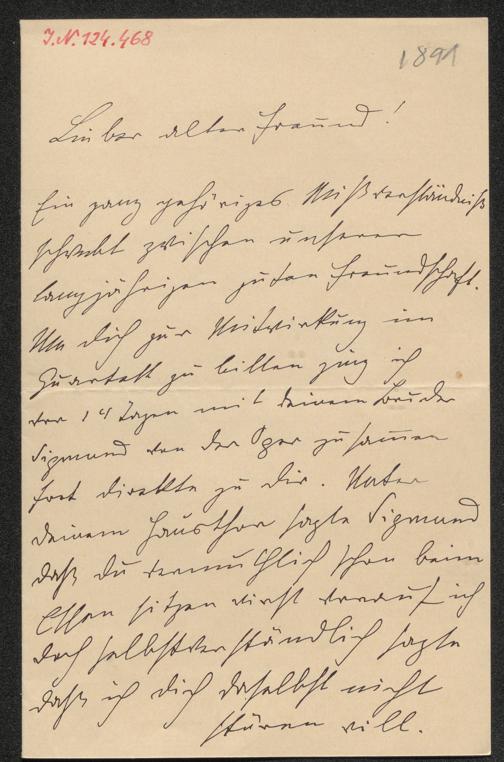 J.N. 124.468
1891
Lieber alter Freund!
Ein ganz gehöriges Mißverständniß
schwebt zwischen unserer
langjährigen guten Freundschaft.
Um dich zur Mitwirkung im
Quartett zu bitten ging ich
vor 14 Tagen mit deinem Bruder
Sigmund von der Oper zusamen
fort direkte zu dir. Unter
deinem Hausthor sagte Sigmund
daß du vermuthlich schon beim
Essen sitzen wirst worauf ich
doch selbstverständlich sagte
daß ich dich daselbst nicht
stören will.